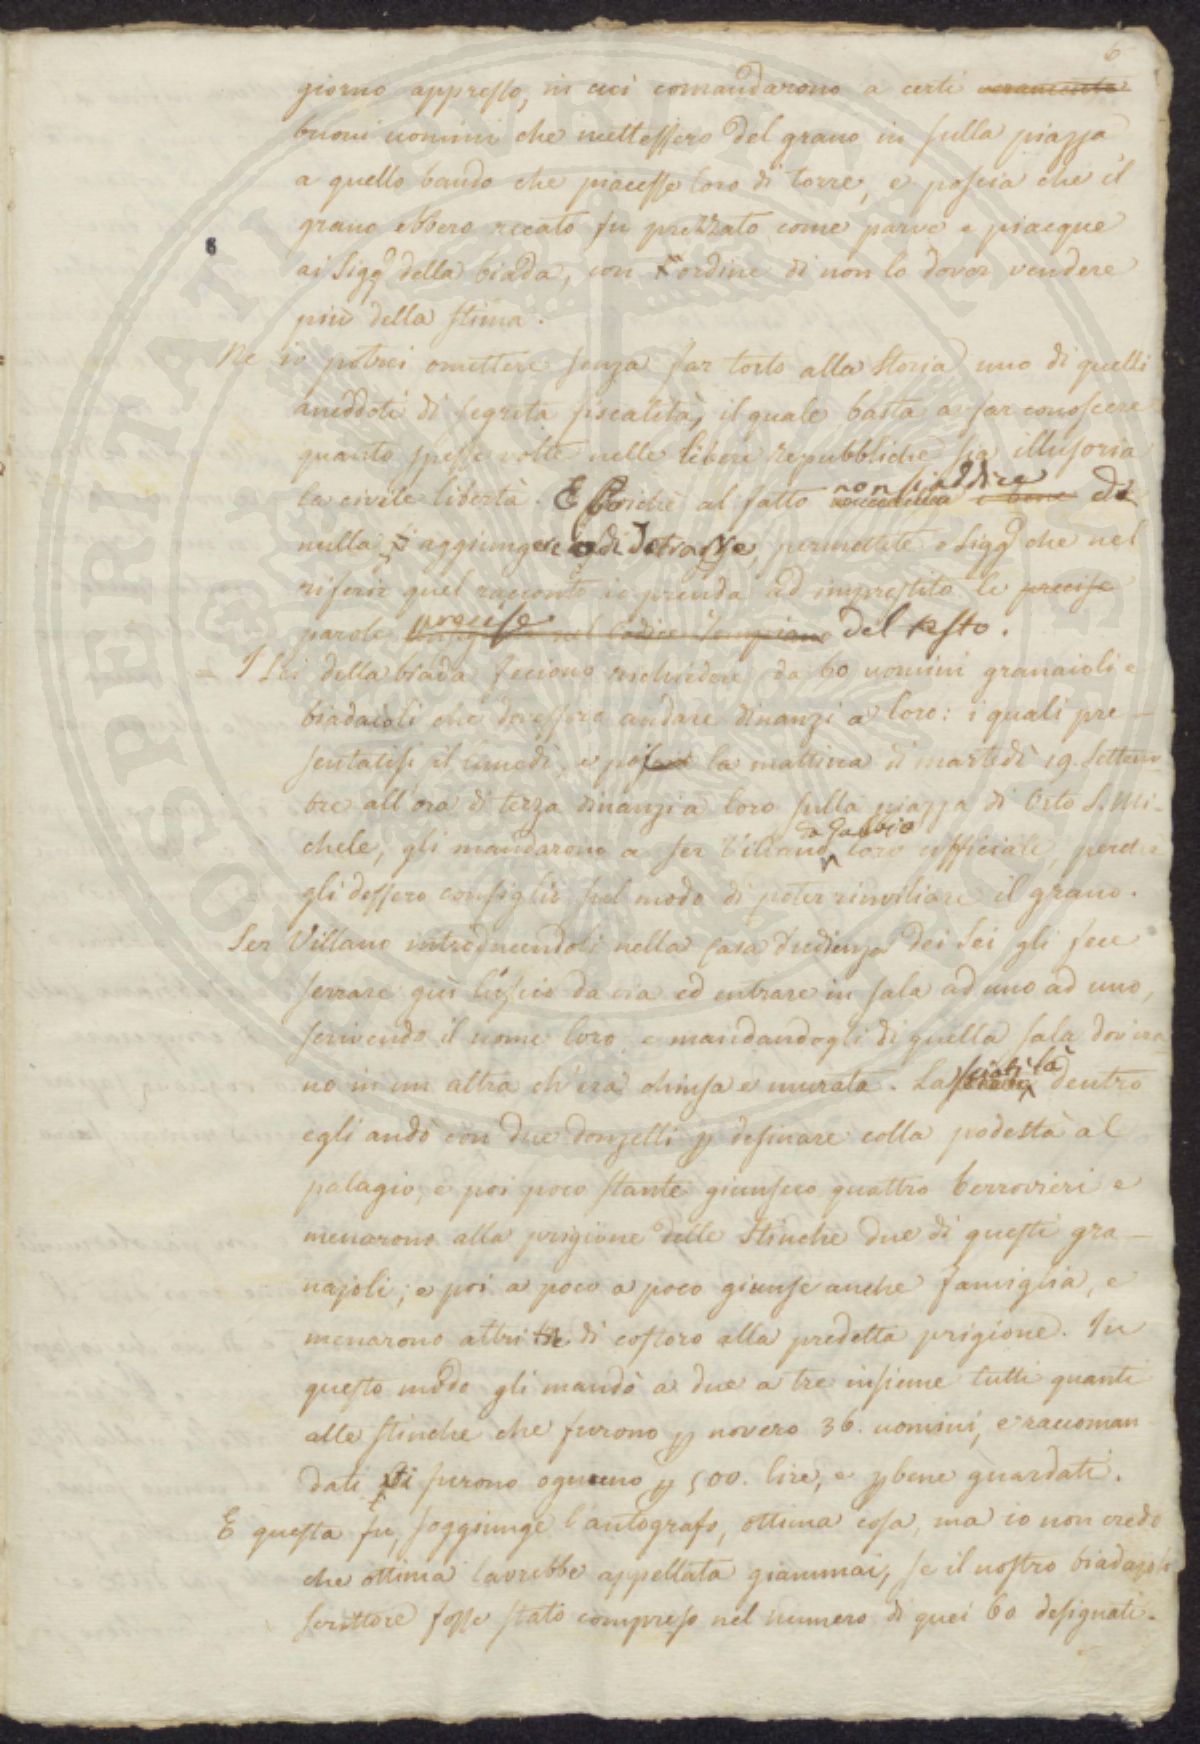 6
giorno appresso, in cui comandarono a certi
buoni uomini che mettessero del grano in sulla piazza
a quello bando che piacesse loro di torre, e poscia che il
grano ebbero recato fu prezzato come parve e piacque
ai Sigg della biada, con ordine di non lo dover vendere
più della stima.
Ne io potrei omettere senza far torto alla Storia uno di quelli
aneddoti di segreta fiscalità, il quale basta a far conoscere
quanto spesse volte nelle libere repubbliche sia illusoria
la civile libertà. E Poichè al fatto non si addice
nulla aggiungere o di detrarre, permettete o Sigg che nel
riferir quel racconto io prenda ad imprestito le precise
parole precise del testo.
= I Sei della biada feciono richiedere da 60 uomini granaioli e
biadaioli che dovessero andare dinanzi a loro: i quali pre-
sentatisi il lunedì, e poi la mattina di martedì 19. Settem-
bre all'ora di terza dinanzi a loro sulla piazza di Orto S. Mi-
chele, gli mandarono a ser Villano da Gabbio loro officiale, perchè
gli dessero consiglio sul modo di poter rinviliare il grano.
Ser Villano introducendoli nella Casa d'udienza dei Sei gli fece
serrare giù l'uscio da via ed entrare in sala ad uno ad uno,
scrivendo il nome loro e mandandogli di quella sala dov'era-
no in un altra ch'era chiusa e murata. Lasciatili là dentro
egli andò con due donzelli p desinare colla podestà al
palagio, e poi poco stante giunsero quattro berrovieri e
menarono alla prigione delle Stinche due di questi gra-
najoli; e poi a poco a poco giunse anche famiglia, e
menarono altri tre di costoro alla predetta prigione. In
questo modo gli mandò a due a tre insieme tutti quanti
alle stinche che furono p novero 36. uomini, e raccoman
dati sì furono ognuno p 500. lire, e p bene guardati.
E questa fu, soggiunge l'autografo, ottima cosa, ma io non credo
che ottima l'avrebbe appellata giammai, se il nostro biadajolo
scrittore fosse stato compreso nel numero di quei 60 designati.